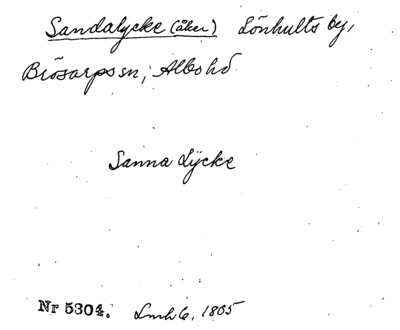 Sandalycke (åker) Lönhults by,
Brösarps sn, Albo hd
Sanna Lÿcke
Nr 5304. Lmh 6, 1805